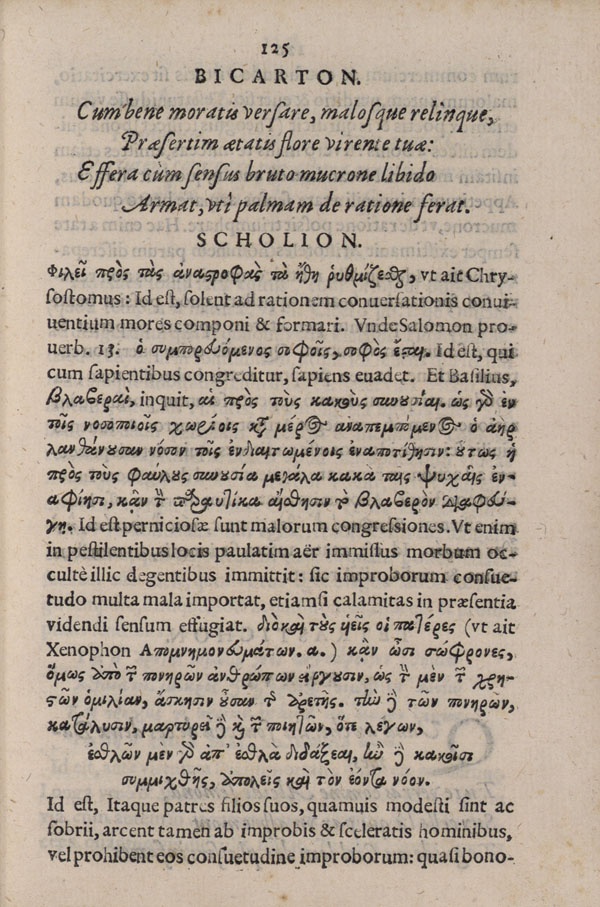 125
BICARTON.
Cum bene moratis versare, malosque relinque,
Præsertim ætatis flore virente tuæ:
Effera cùm sensus bruto mucrone libido
Armat, vti palmam de ratione ferat.
SCHOLION.
Φιλεῖ πρὸς τὰς ἀναστροφὰς τὰ ἤθη ῥυθμίζεσθαι, vt ait Chry-
sostomus: Id est, solent ad rationem conuersationis conui-
uentium mores componi & formari. Vnde Salomon pro-
uerb. 13. ὁ συμπορευόμενος σοφοῖς, σοφὸς ἔσται. Id est, qui
cum sapientibus congreditur, sapiens euadet. Et Basilius,
βλαβεραὶ, inquit, αἱ πρὸς τοὺς κακοὺς συνουσίαι. ὡς γὸ ἐν
τοῖς νοσοποιοῖς χωρίοις κατὰ μέρος ἀναπεμπόμενος ὁ ἀὴρ
λανθάνουσαν νόσον τοῖς ἐνδιαιτωμένοις ἐναποτίθησιν: οὕτως ἡ
πρὸς τοὺς φαύλους συνουσία μεγάλα κακὰ ταῖς ψυχαῖς ἐν-
αφίησι, κἂν τὴν παραυτίκα αἴσθησιν τὸ βλαβερὸν διαφεύ-
γῃ. Id est perniciosæ sunt malorum congressiones. Vt enim
in pestilentibus locis paulatim aër immissus morbum oc-
cultè illic degentibus immittit: sic improborum consue-
tudo multa mala importat, etiamsi calamitas in præsentia
videndi sensum effugiat. διὸ καὶ τοὺς υἱεῖς οἱ πατέρες (vt ait
Xenophon Ἀπομνημονευμάτων. α.) κἂν ὦσι σώφρονες,
ὅμως ἀπὸ τῶν πονηρῶν ἀνθρώπων εἴργουσιν, ὡς τὴν μὲν τῶν χρη-
στῶν ὁμιλίαν, ἄσκησιν οὖσαν τῆς ἀρετῆς. τὴν δὲ τῶν πονηρῶν,
κατάλυσιν, μαρτυρεῖ δὲ καὶ τῶν ποιητῶν, ὅτε λέγων,
ἐσθλῶν μὲν γὸ ἀπ' ἐσθλὰ διδάξεαι, ἢν δὲ κακοῖσι
συμμιχθῇς, ἀπολεῖς καὶ τὸν ἐόντα νόον.
Id est, Itaque patres filios suos, quamuis modesti sint ac
sobrii, arcent tamen ab improbis & sceleratis hominibus,
vel prohibent eos consuetudine improborum: quasi bono-